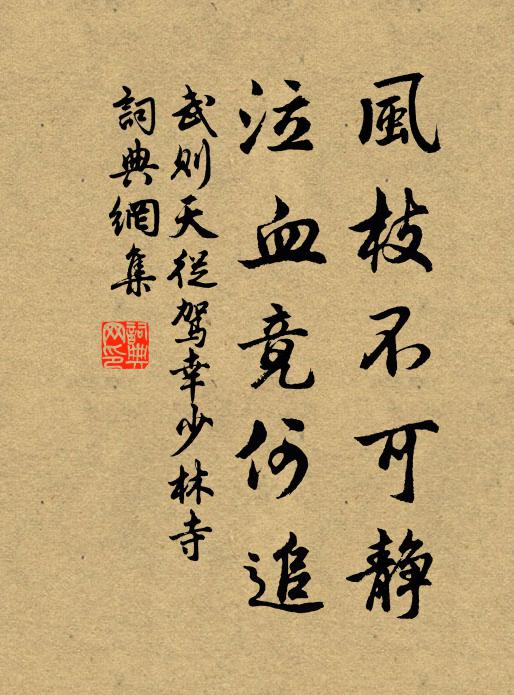 風枝不可静
泣血竟何追
武則天從駕幸少林寺
詞典網集
詞典网印